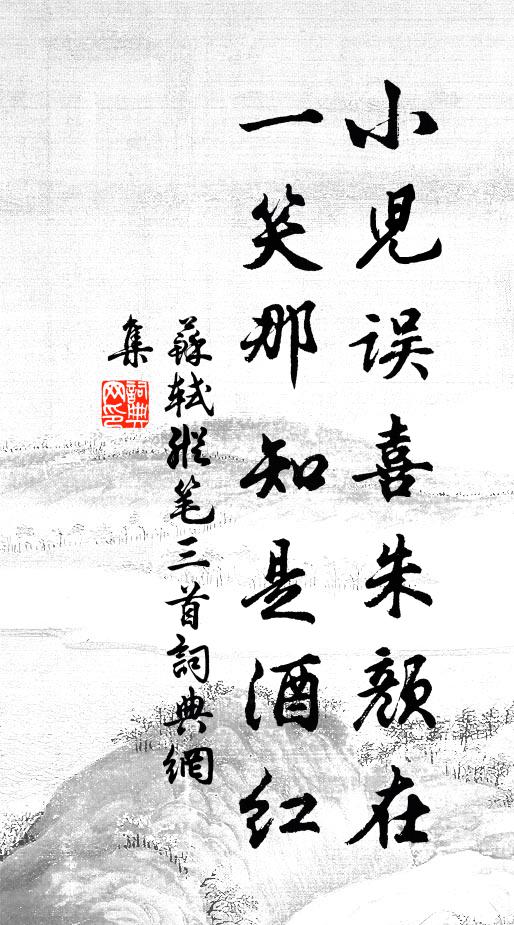 小児误喜朱顏在
一笑那知是酒红
蘇轼縱笔三首詞典網
集
詞典
网印